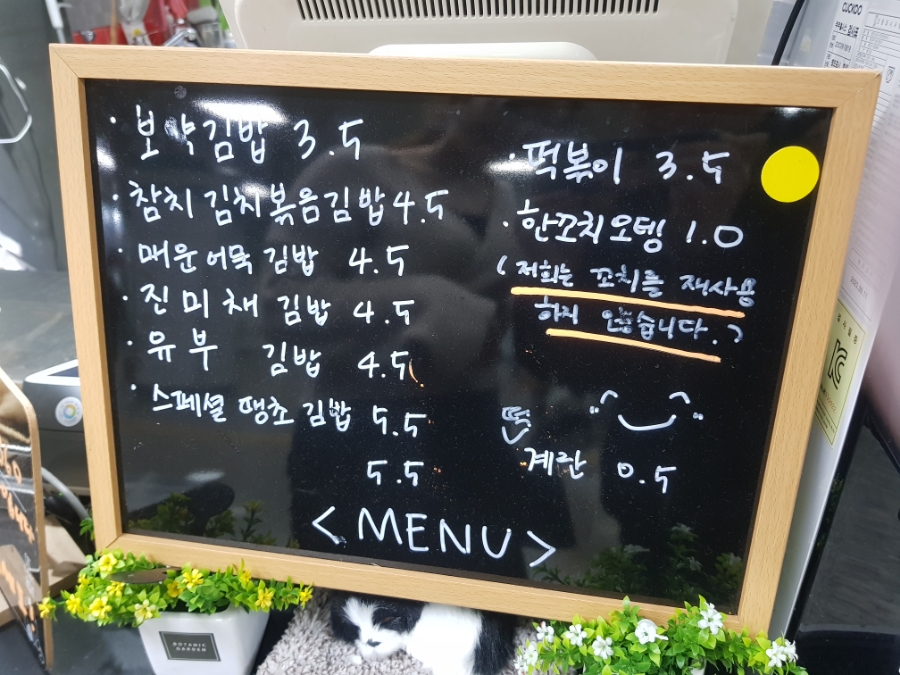 보약김밥 3.5
참치김치볶음김밥 4.5
매운어묵김밥 4.5
진미채 김밥 4.5
유부 김밥 4.5
스페셜 땡초김밥 5.5
5.5
떡볶이 3.5
한꼬치오뎅 1.0
(저희는 꼬치를 재사용
하지 않습니다.)
떡
계란 0.5
<MENU>
CUCKOO
BOTANIC
GARDEN